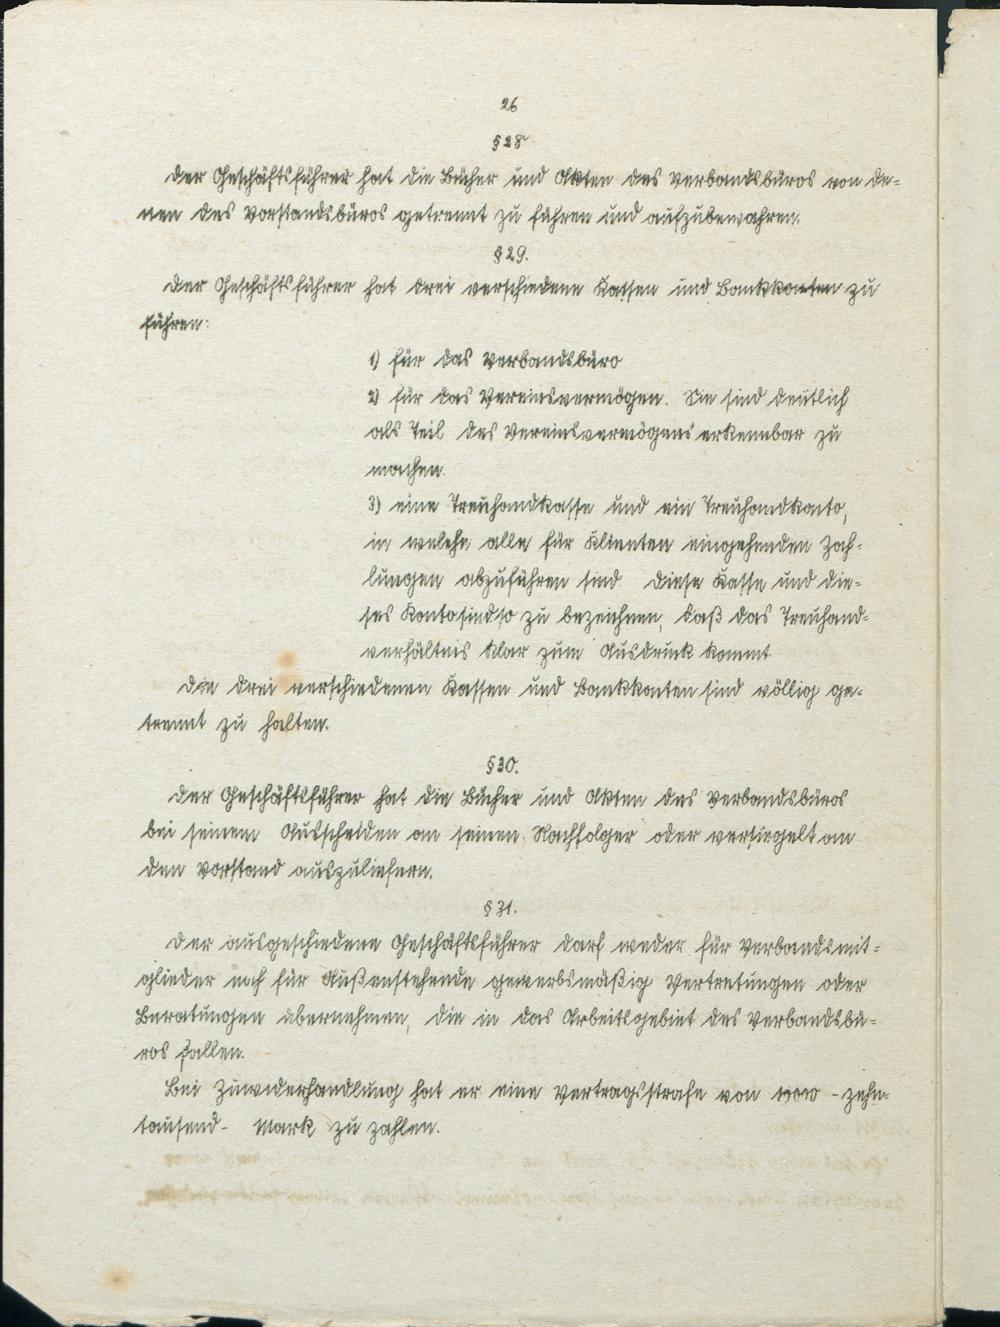 26
§ 28
Der Geschäftsführer hat die Bücher und Akten des Verbandsbüros von de-
nen des Vorstandsbüros getrennt zu führen und aufzubewahren.
§ 29.
Der Geschäftsführer hat drei verschiedene Kassen und Bankkonten zu
führen:
1) für das Verbandsbüro
2) für das Vereinsvermögen. Sie sind deutlich
als Teil des Vereinsvermögens erkennbar zu
machen.
3) eine Treuhandkasse und ein Treuhandkonto,
in welche alle für Klienten eingehenden Zah-
lungen abzuführen sind Diese Kasse und die-
ses Konto sind so zu bezeichnen, daß das Treuhand-
verhältnis klar zum Ausdruck kommt
Die drei verschiedenen Kassen und Bankkonten sind völlig ge-
trennt zu halten.
§ 30.
Der Geschäftsführer hat die Bücher und Akten des Verbandsbüros
bei seinem Ausscheiden an seinen Nachfolger oder versiegelt an
den Vorstand auszuliefern.
§ 31.
Der ausgeschiedene Geschäftsführer darf weder für Verbandsmit-
glieder noch für Außenstehende gewerbsmäßig Vertretungen oder
Beratungen übernehmen, die in das Arbeitsgebiet des Verbandsbü-
ros fallen.
Bei Zuwiderhandlung hat er eine Vertragsstrafe von 10000 - zehn-
tausend - Mark zu zahlen.